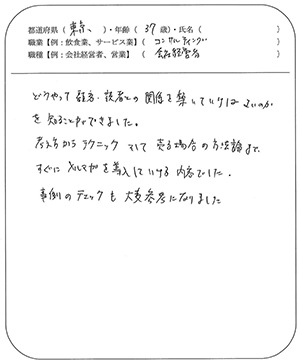 都道府県（ 東京、 ）・年齢（ 37 歳）・氏名（ ）
職業【例：飲食業、サービス業】（ コンサルティング ）
職種【例：会社経営者、営業】（ 会社経営者 ）
どうやって顧客・読者との関係を築いていけばよいのか
を知ることができました。
考え方からテクニック そして 売る場合の方法論まで、
すぐに メルマガを導入していける内容でした。
事例のチェックも 大変参考になりました